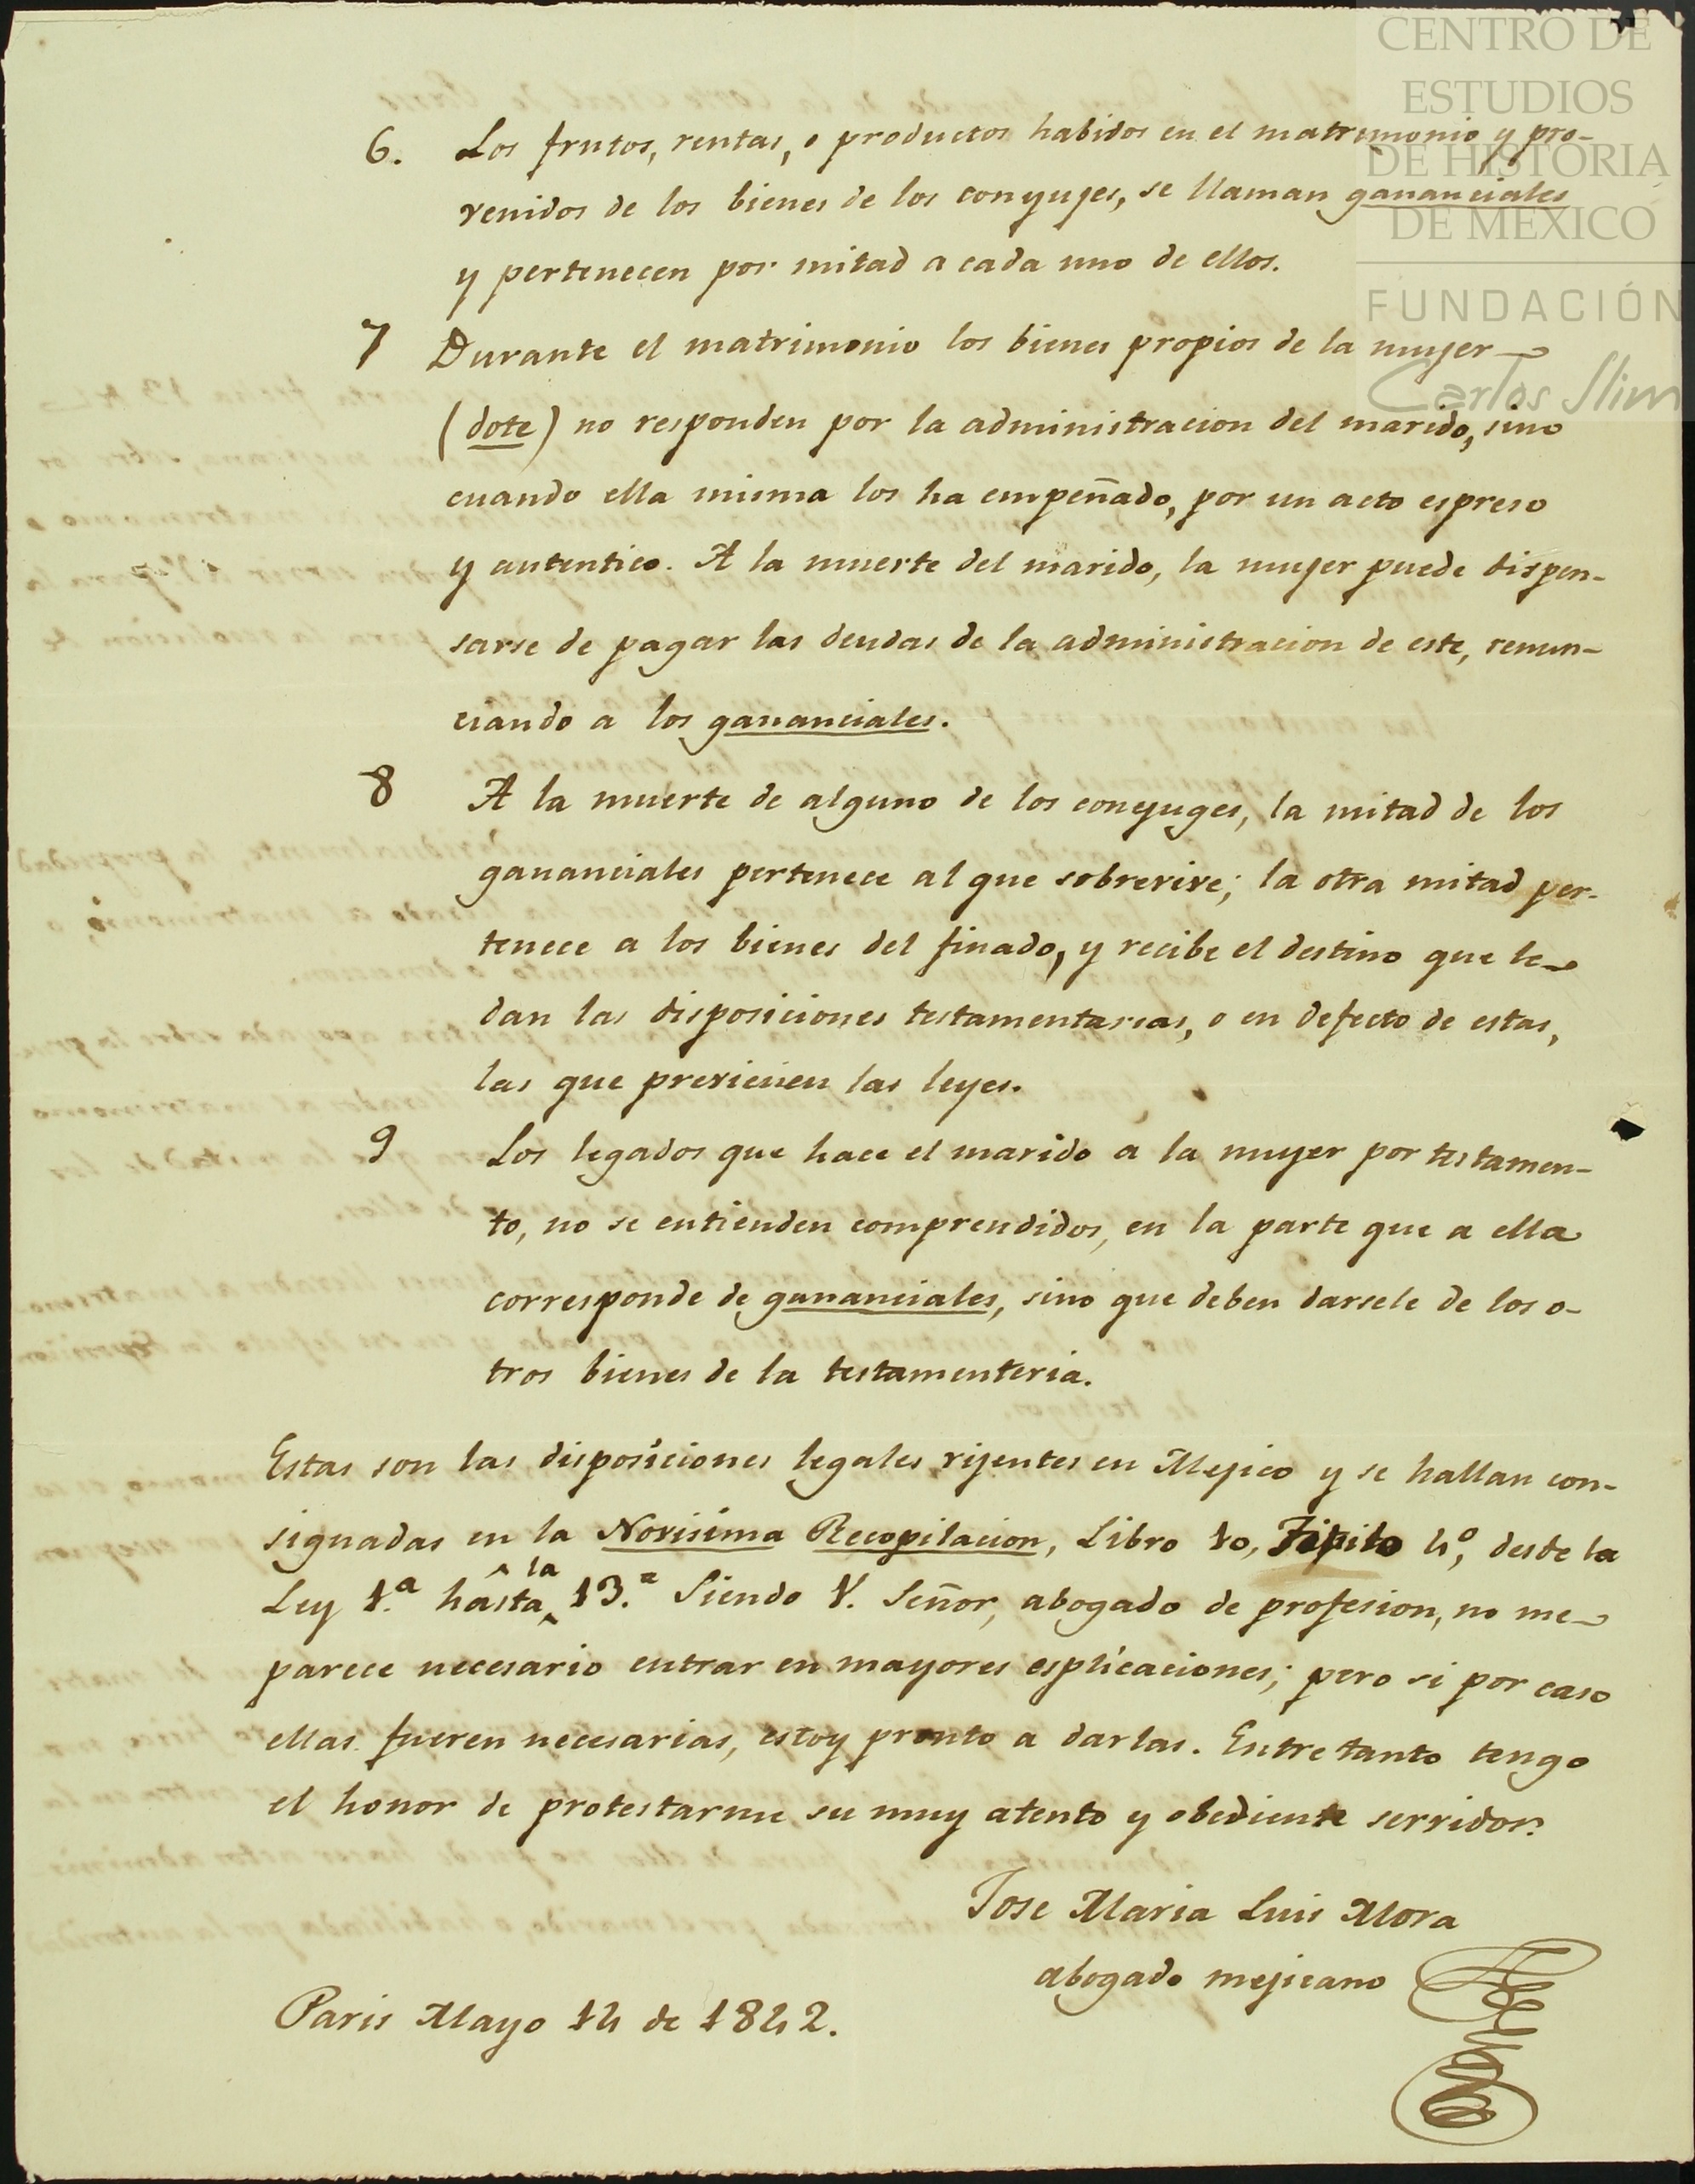 CENTRO DE
ESTUDIOS
DE HISTORIA
DE MÉXICO
FUNDACIÓN
Carlos Slim
6. Los frutos, rentas, o productos habidos en el matrimonio y pro-
venidos de los bienes de los conyujes, se llaman gananciales
y pertenecen por mitad a cada uno de ellos.
7 Durante el matrimonio los bienes propios de la mujer
(dote) no responden por la administracion del marido, sino
cuando ella misma los ha empeñado, por un acto espreso
y autentico. A la muerte del marido, la mujer puede dispen-
sarse de pagar las deudas de la administracion de este, renun-
ciando a los gananciales.
8 A la muerte de alguno de los conyuges, la mitad de los
gananciales pertenece al que sobrevive; la otra mitad per-
tenece a los bienes del finado, y recibe el destino que le
dan las disposiciones testamentarias, o en defecto de estas,
las que previenen las leyes.
9 Los legados que hace el marido a la mujer por testamen-
to, no se entienden comprendidos, en la parte que a ella
corresponde de gananciales, sino que deben darsele de los o-
tros bienes de la testamenteria.
Estas son las disposiciones legales vijentes en Mejico y se hallan con-
signadas en la Novisima Recopilacion, Libro 10, Titulo 4º, desde la
Ley 1.ª hasta la 13.ª Siendo V. Señor, abogado de profesion, no me
parece necesario entrar en mayores esplicaciones; pero si por caso
ellas fueren necesarias, estoy pronto a darlas. Entre tanto tengo
el honor de protestarme su muy atento y obediente servidor.
Jose Maria Luis Mora
abogado mejicano
Paris Mayo 14 de 1842.